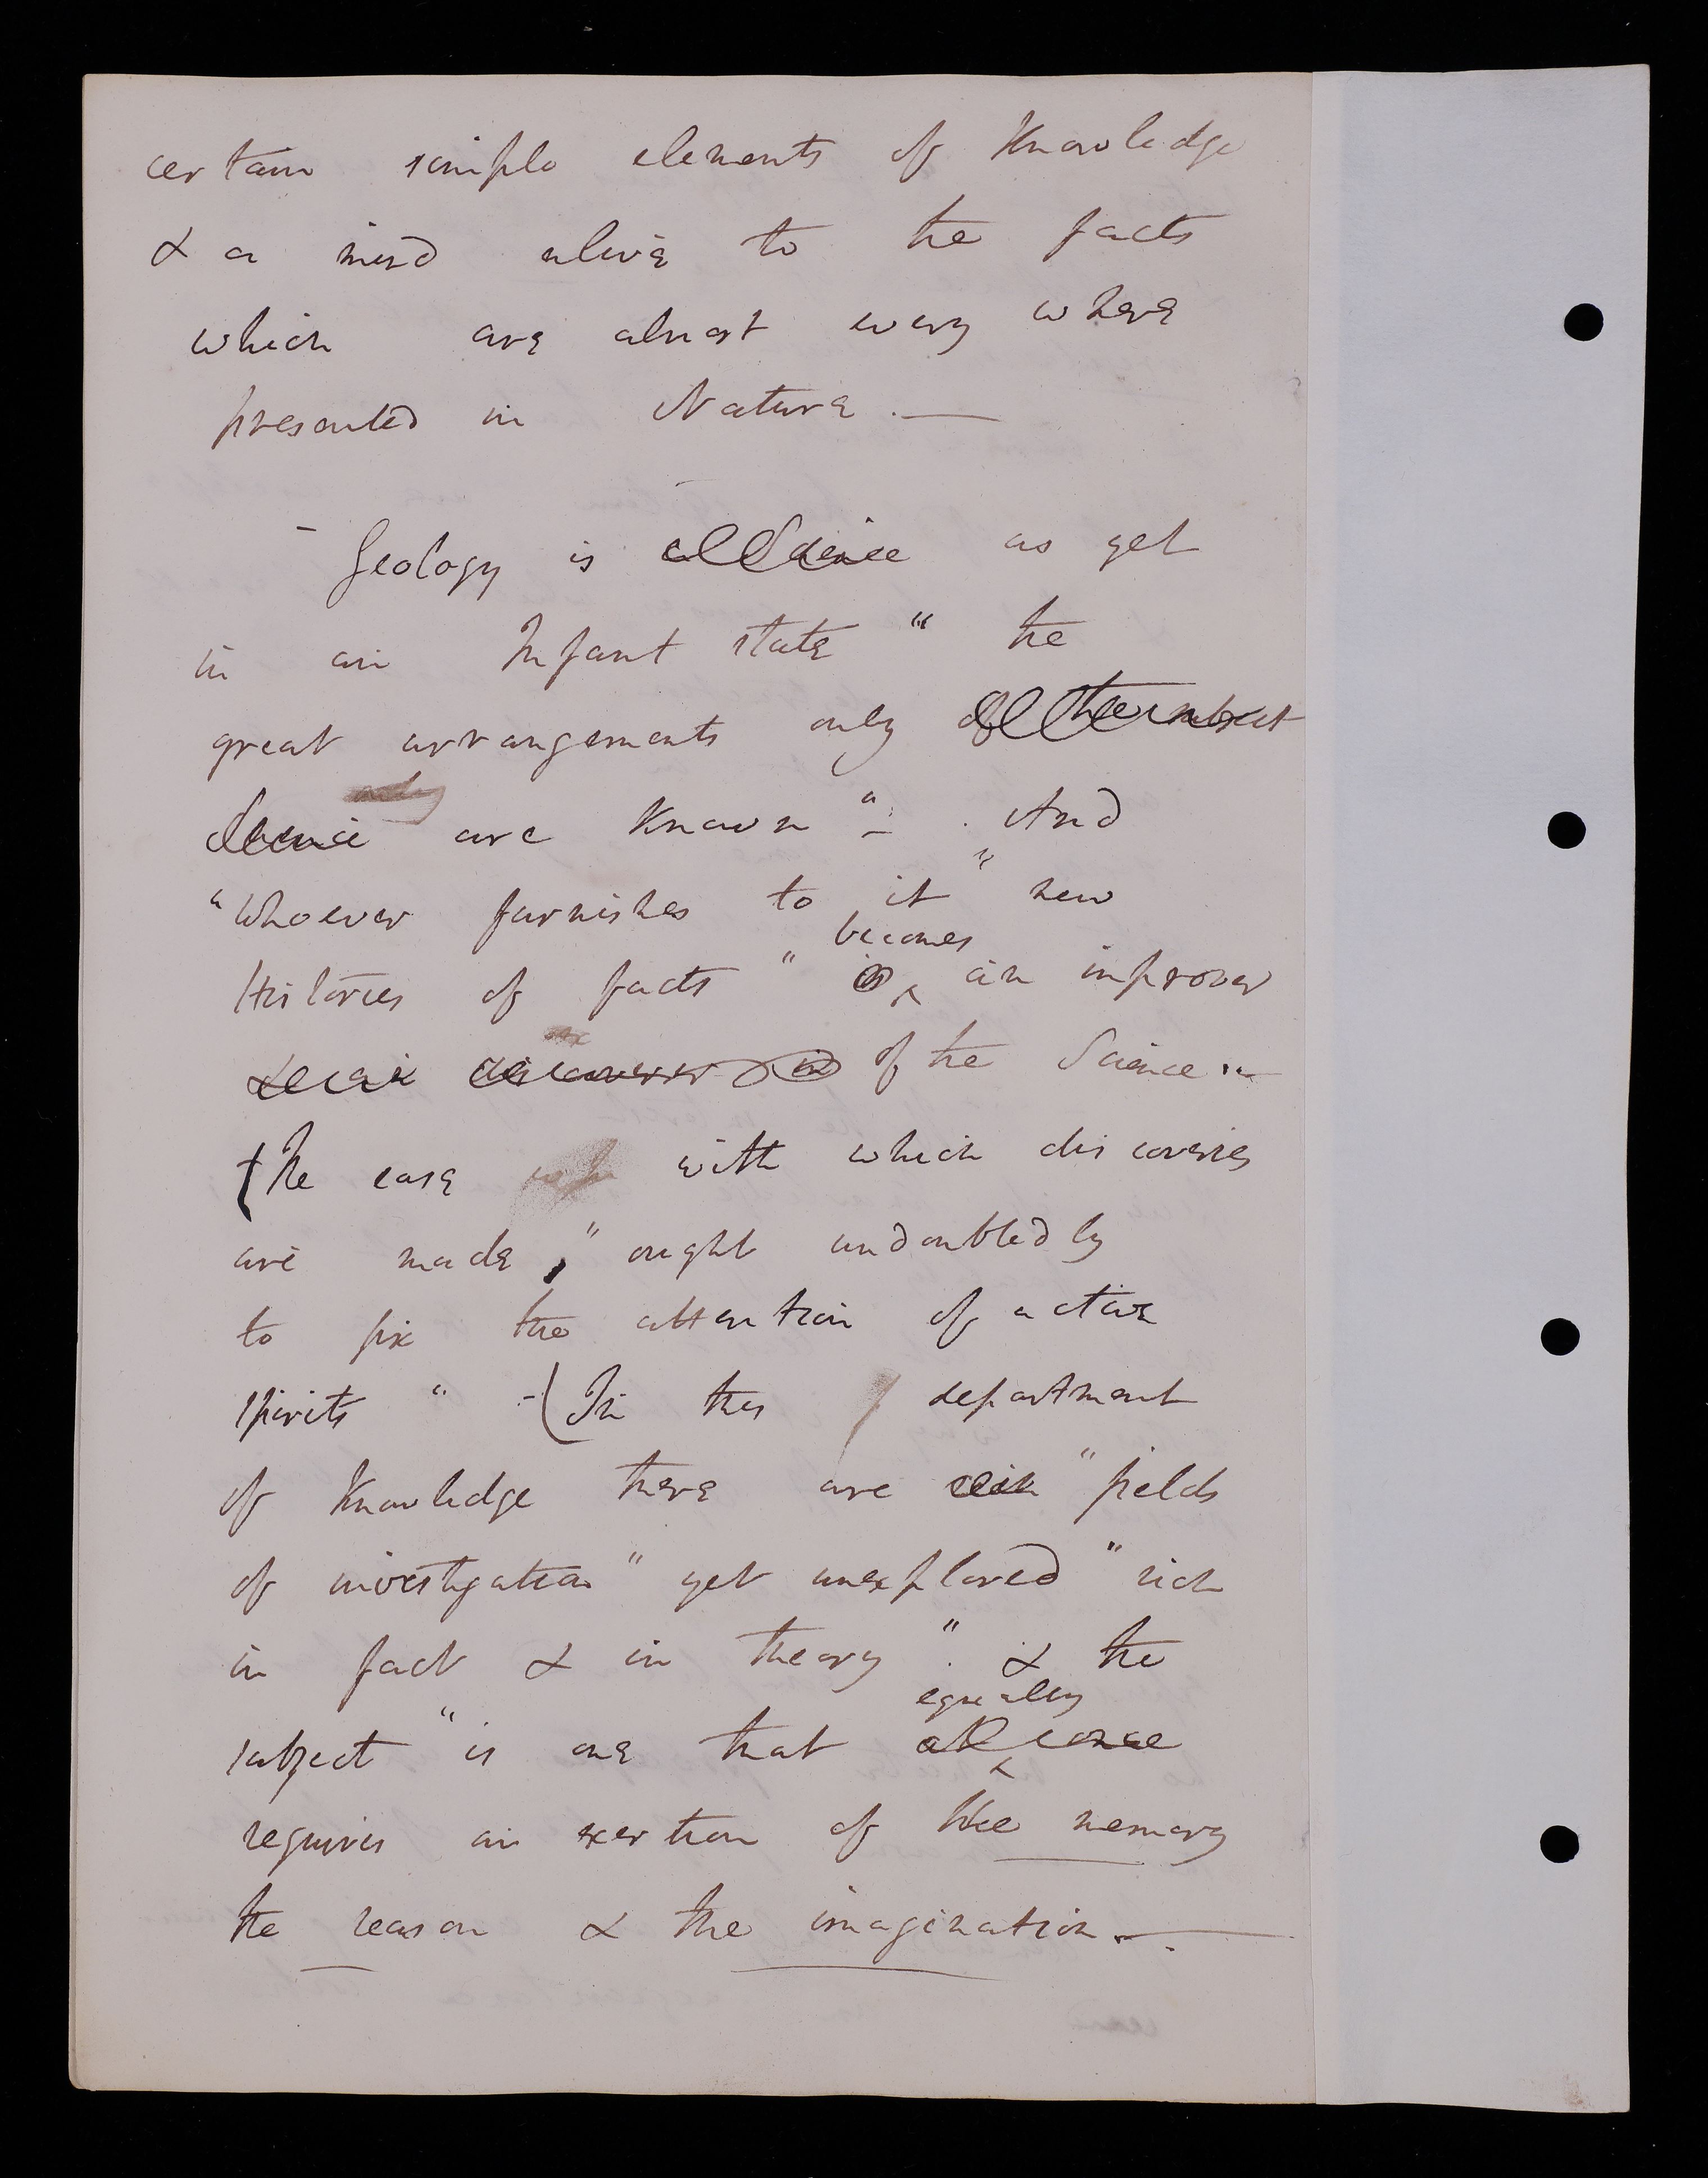 certain simple elements of Knowledge
& a mind alive to the facts
which are almost every where
presented in Nature. —
– Geology is a Science as yet
in an Infant state " the
great arrangements only of the subject
are known " – . And
" Whoever furnishes to it " new
Histories of facts " is becomes an improver
discoverer in of the Science. –
The ease with which discoveries
are made, " ought undoubtedly
to fix the attention of active
spirits " – (In this department
of Knowledge there are " fields
of investigation " yet unexplored " rich
in fact & in theory " . & the
equally
subject " is one that at once
requires an exertion of the memory
the reason & the imagination. — .